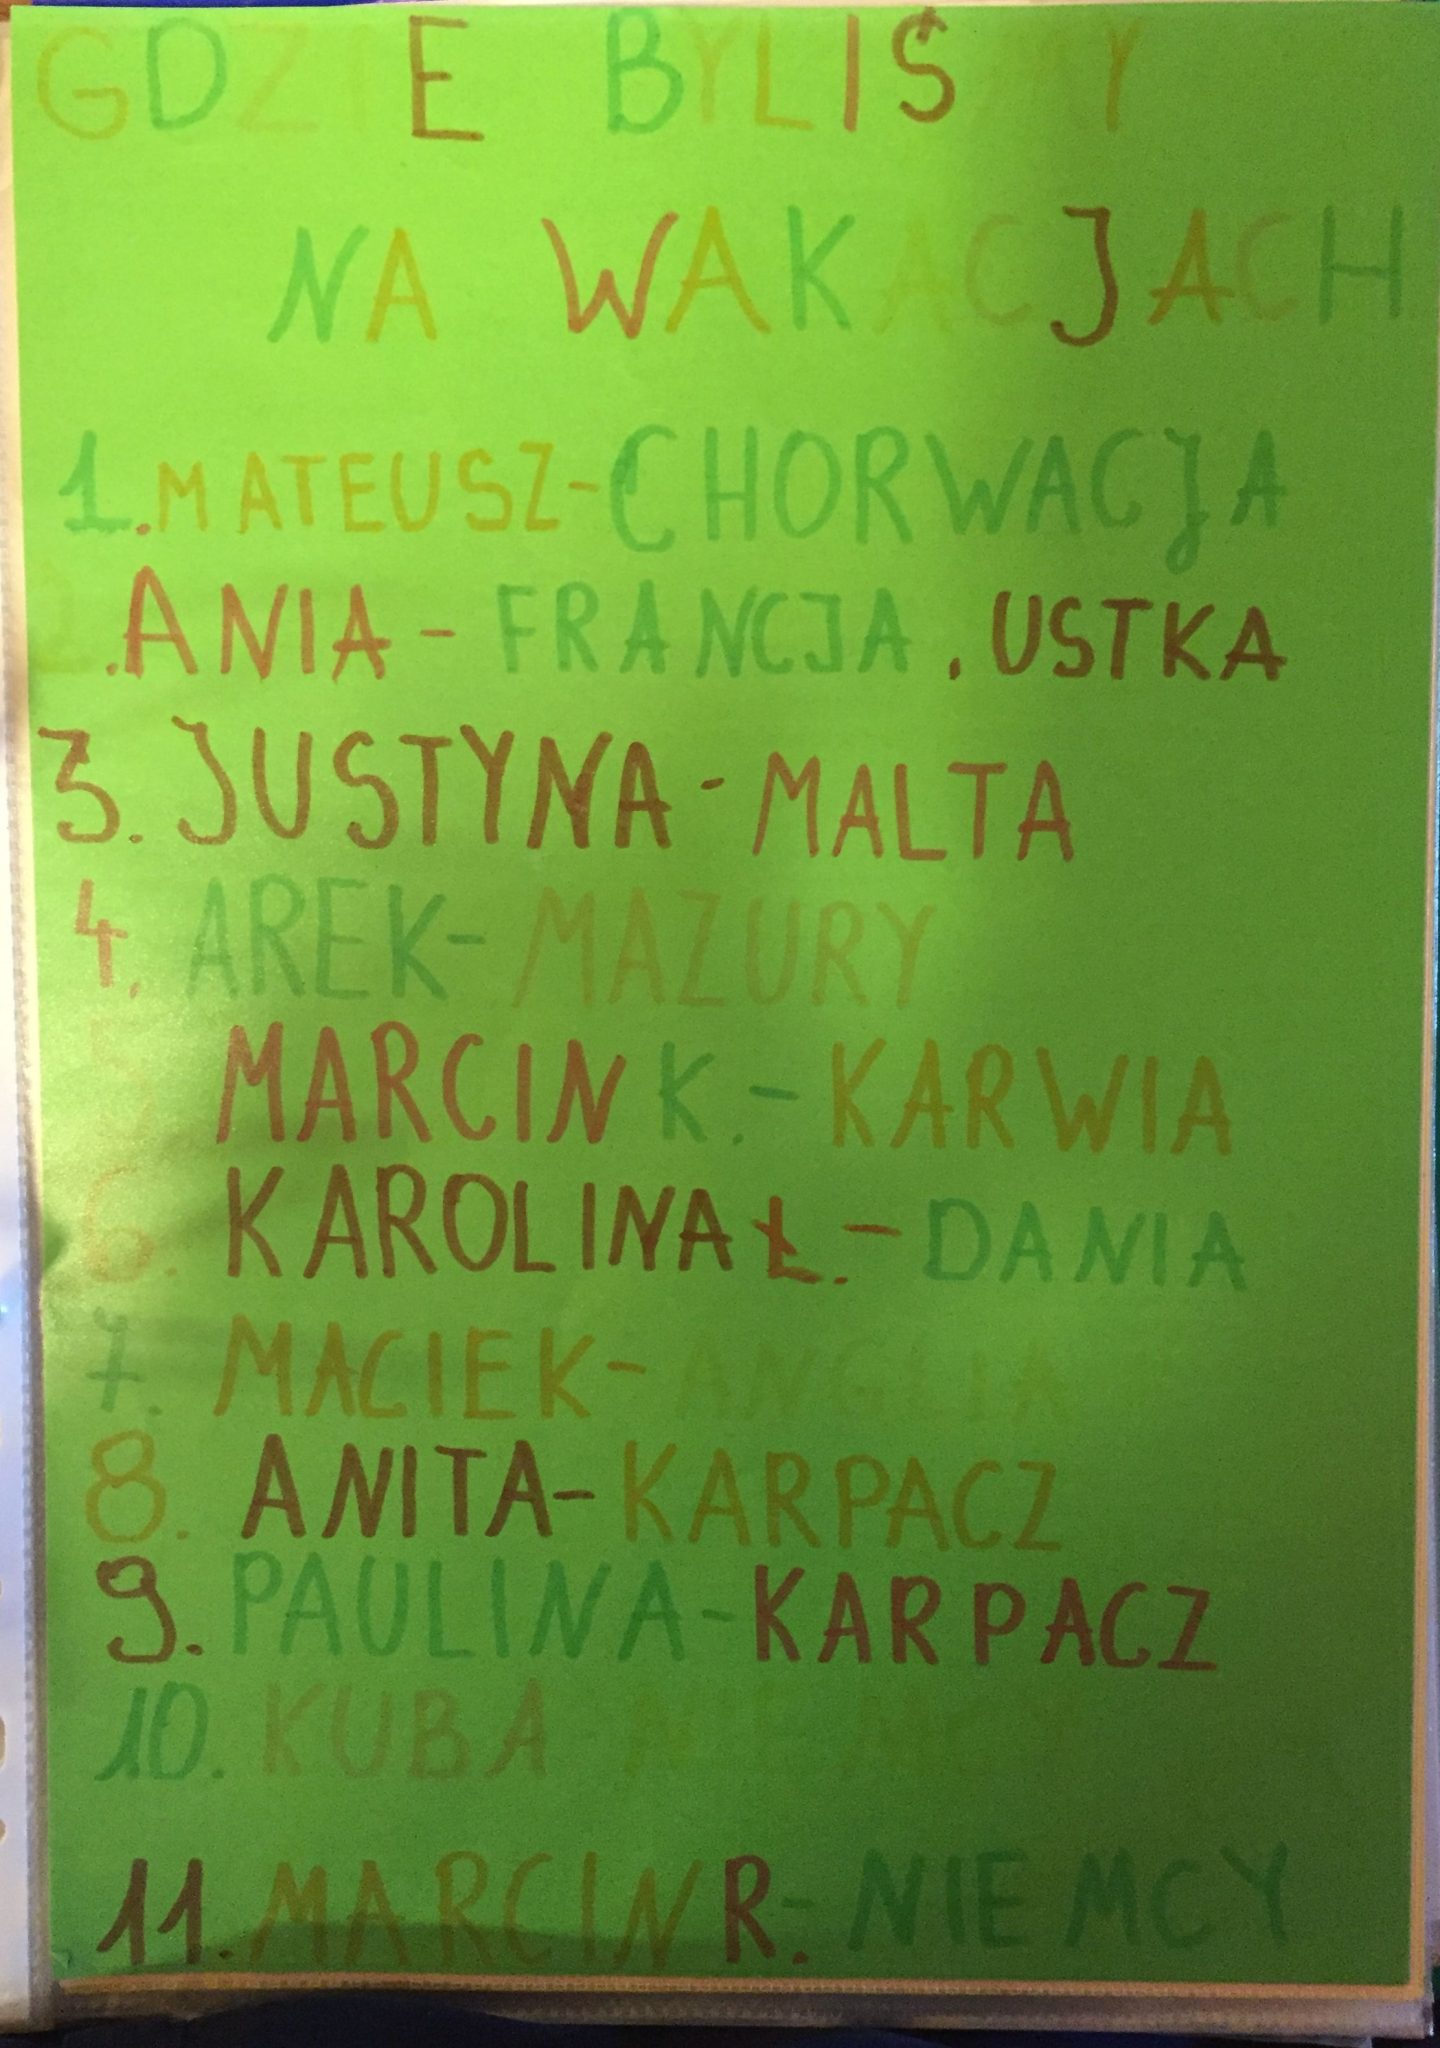 GDZIE BYLIŚMY
NA WAKACJACH
1. MATEUSZ - CHORWACJA
2. ANIA - FRANCJA, USTKA
3. JUSTYNA - MALTA
4. AREK - MAZURY
5 MARCIN K. - KARWIA
6. KAROLINA Ł. - DANIA
7. MACIEK - ANGLIA
8. ANITA - KARPACZ
9. PAULINA - KARPACZ
10. KUBA NIEMCY
11. MARCIN R. - NIEMCY